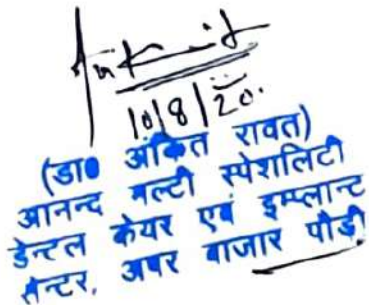 Ankit
10/8/20.
(डा० अंकित रावत)
आनन्द मल्टी स्पेशलिटी
डेन्टल केयर एवं इम्प्लान्ट
सेन्टर, अपर बाजार पौड़ी